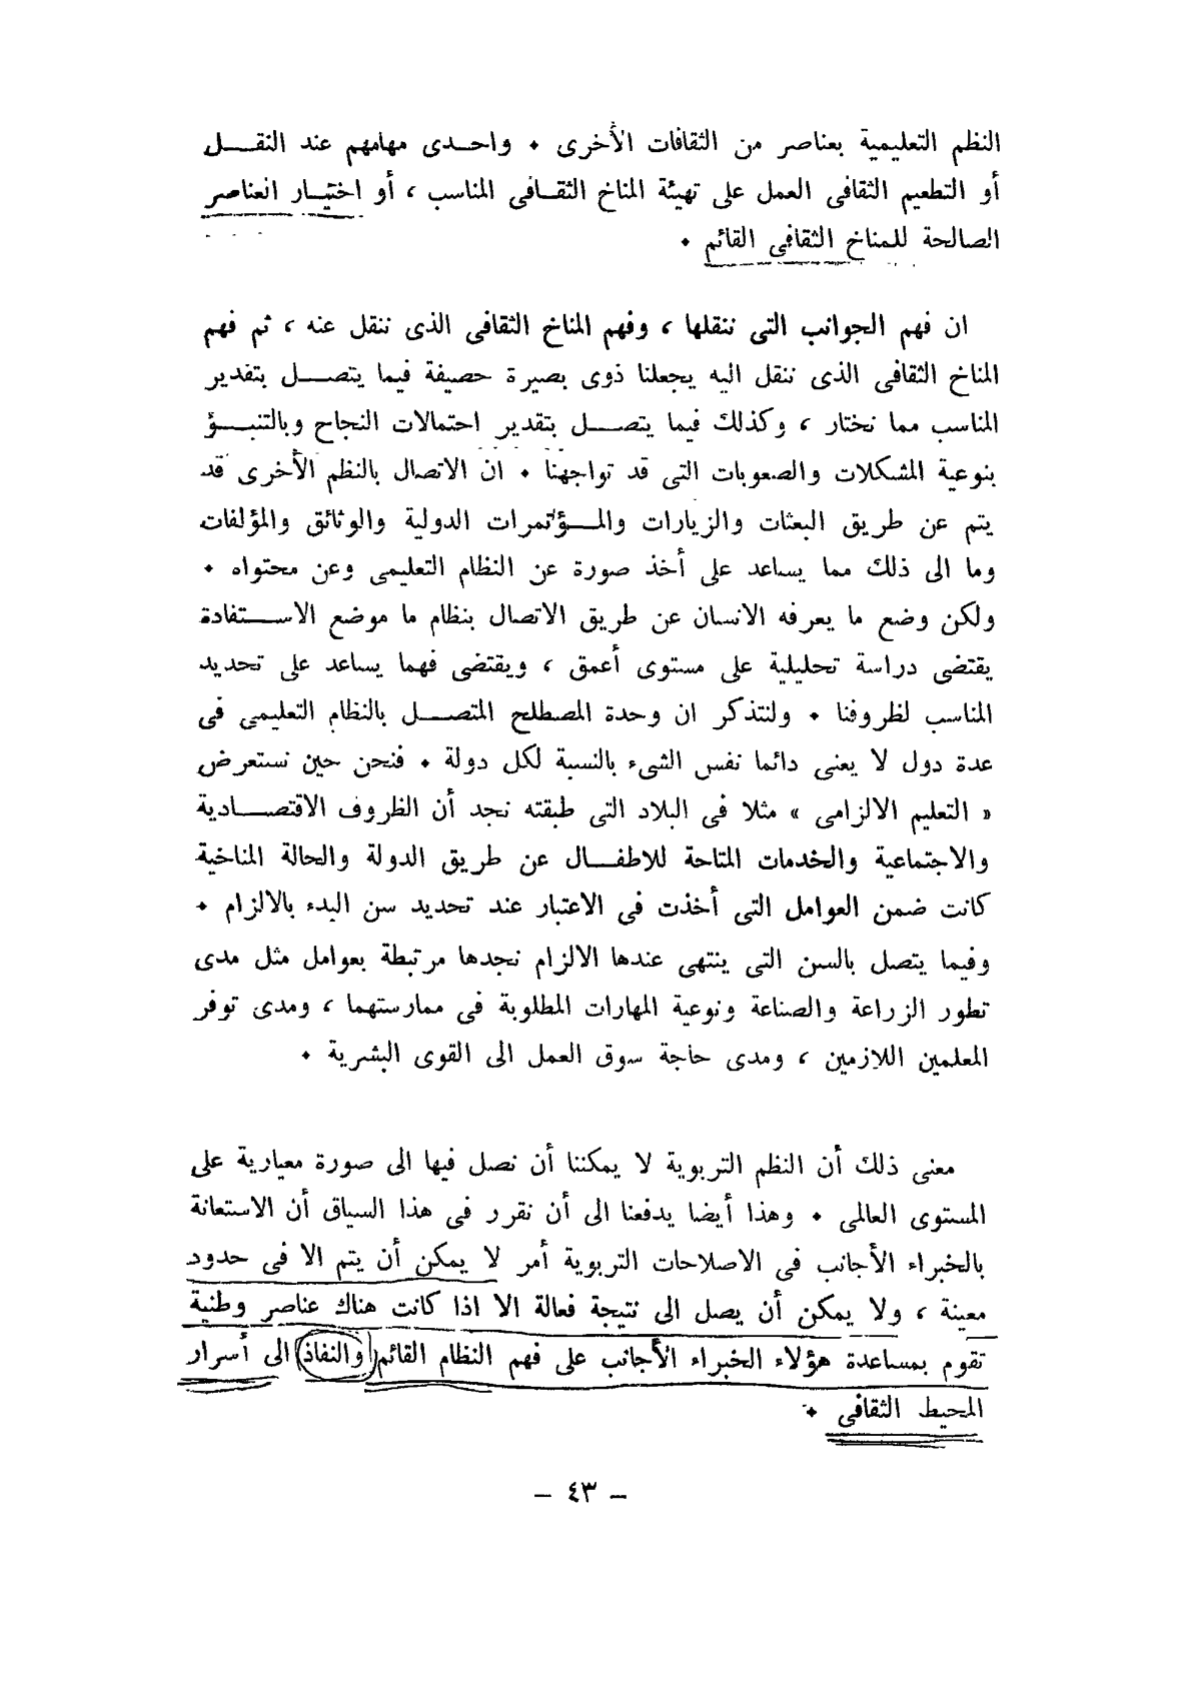 النظم التعليمية بعناصر من الثقافات الأخرى • واحدى مهامهم عند النقل
أو التطعيم الثقافى العمل على تهيئة المناخ الثقافى المناسب ، أو اختيار العناصر
الصالحة للمناخ الثقافى القائم •
ان فهم الجوانب التى ننقلها ، وفهم المناخ الثقافى الذى ننقل عنه ، ثم فهم
المناخ الثقافى الذى ننقل اليه يجعلنا ذوى بصيرة حصيفة فيما يتصل بتقدير
المناسب مما نختار ، وكذلك فيما يتصل بتقدير احتمالات النجاح وبالتنبؤ
بنوعية المشكلات والصعوبات التى قد تواجهنا • ان الاتصال بالنظم الأخرى قد
يتم عن طريق البعثات والزيارات والمؤتمرات الدولية والوثائق والمؤلفات
وما الى ذلك مما يساعد على أخذ صورة عن النظام التعليمى وعن محتواه •
ولكن وضع ما يعرفه الانسان عن طريق الاتصال بنظام ما موضع الاستفادة
يقتضى دراسة تحليلية على مستوى أعمق ، ويقتضى فهما يساعد على تحديد
المناسب لظروفنا • ولنتذكر ان وحدة المصطلح المتصل بالنظام التعليمى فى
عدة دول لا يعنى دائما نفس الشىء بالنسبة لكل دولة • فنحن حين نستعرض
« التعليم الالزامى » مثلا فى البلاد التى طبقته نجد أن الظروف الاقتصادية
والاجتماعية والخدمات المتاحة للاطفال عن طريق الدولة والحالة المناخية
كانت ضمن العوامل التى أخذت فى الاعتبار عند تحديد سن البدء بالالزام •
وفيما يتصل بالسن التى ينتهى عندها الالزام نجدها مرتبطة بعوامل مثل مدى
تطور الزراعة والصناعة ونوعية المهارات المطلوبة فى ممارستهما ، ومدى توفر
المعلمين اللازمين ، ومدى حاجة سوق العمل الى القوى البشرية •
معنى ذلك أن النظم التربوية لا يمكننا أن نصل فيها الى صورة معيارية على
المستوى العالمى • وهذا أيضا يدفعنا الى أن نقرر فى هذا السياق أن الاستعانة
بالخبراء الأجانب فى الاصلاحات التربوية أمر لا يمكن أن يتم الا فى حدود
معينة ، ولا يمكن أن يصل الى نتيجة فعالة الا اذا كانت هناك عناصر وطنية
تقوم بمساعدة هؤلاء الخبراء الأجانب على فهم النظام القائم والنفاذ الى أسرار
المحيط الثقافى •
– ٤٣ –